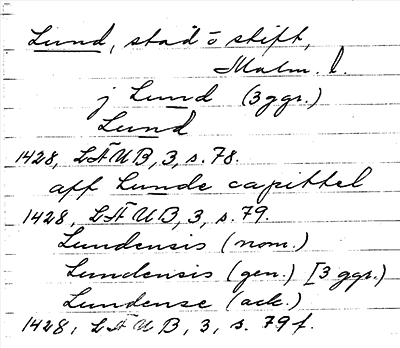 Lund, stad o stift,
Malm. l.
j Lund (3 ggr.)
Lund
1428, LÄUB, 3, s. 78.
aff Lunde capittel
1428, LÄUB, 3, s. 79.
Lundensis (nom.)
Lundensis (gen.) [3 ggr.)
Lundense (ack.)
1428, LÄUB, 3, s. 79 f.